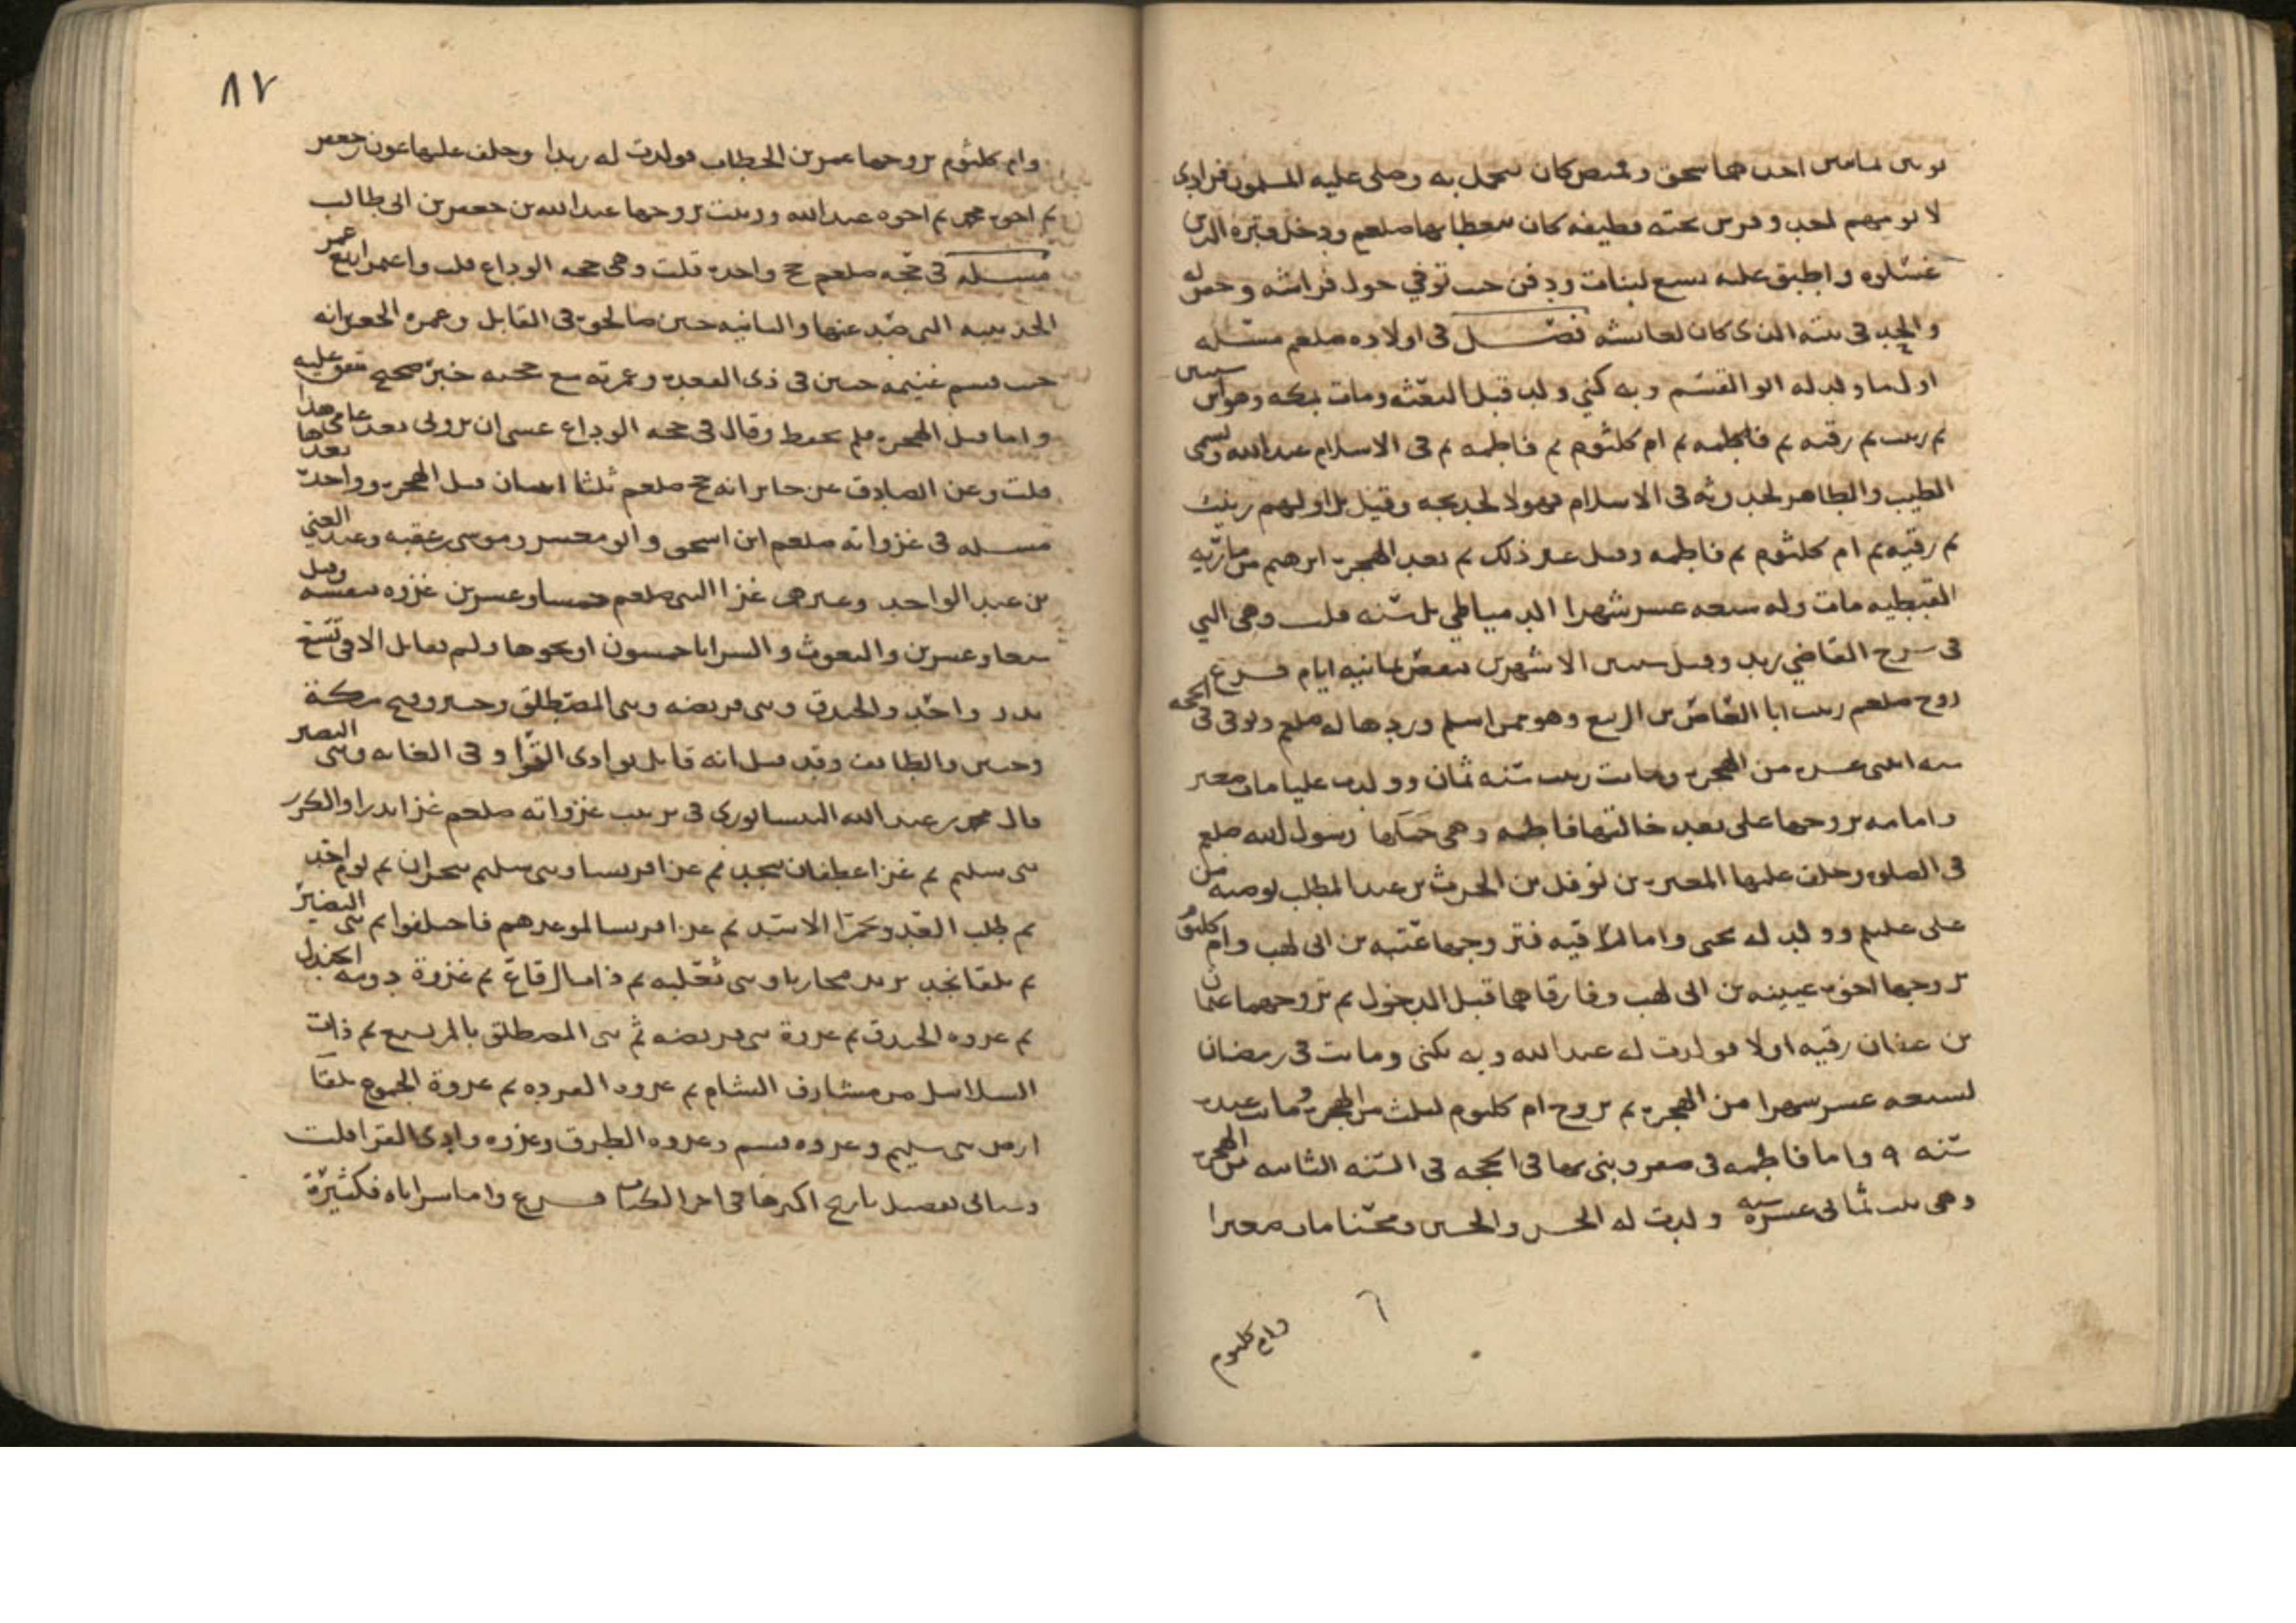 لا يؤمهم احد وفرش تحته قطيفه كان يتغطا بها صلعم ودخل قبره الذين
غسلوه واطبق عليه تسع لبنات ودفن حيث توفي حول فراشه وحفر له
والحد في بيته الذي كان لعايشه فصل في اولاده صلعم مسئله
اول ما ولد له ابو القسم وبه كني ولد قبل البعثه ومات بمكه وهو ابن سنتين
ثم زينب ثم رقيه ثم فاطمه ثم ام كلثوم ثم فاطمه ثم في الاسلام عبد الله ويسمى
الطيب والطاهر لحدوثه في الاسلام فهولا لخديجه وقيل بل اولهم زينب
ثم رقيه ثم ام كلثوم ثم فاطمه وقيل غير ذلك ثم بعد الهجره ابرهيم من ماريه
القبطيه مات وله سبعه عشر شهرا الدمياطي بل سنه قلت وهي التي
في شرح القاضي زيد وقيل سنتين الا شهرين ينقص ثمانيه ايام فرع
زوج صلعم زينب ابا العاص بن الربيع وهو ممن اسلم وردها له صلعم وتوفي في الحجه
سنه اثنتي عشره من الهجره وماتت زينب سنه ثمان وولدت عليا مات صغيرا
وامامه تزوجها علي بعد خالتها فاطمه وهي حملها رسول الله صلعم
في الصلوه وخلف عليها المغيره بن نوفل بن الحرث بن عبد المطلب بوصيه من
علي عليلم وولد له يحيى واما رقيه فتزوجها عتبه بن ابي لهب وام كلثوم
تزوجها اخوه عيينه بن ابي لهب وفارقاهما قبل الدخول ثم تزوجهما عثمان
بن عفان رقيه اولا فولدت له عبد الله وبه يكنى وماتت في رمضان
لسبعه عشر شهرا من الهجره ثم تزوج ام كلثوم لثلث من الهجره وماتت عنده
سنه ٩ واما فاطمه في صفر وبنى بها في الحجه في السنه الثانيه من الهجره
وهي بنت ثماني عشره سنه ولدت له الحسن والحسين ومحسنا مات صغيرا
وام كلثوم
٨٧
وام كلثوم تزوجها عمر بن الخطاب فولدت له زيدا وخلف عليها عون بن جعفر
ثم اخوه محمد ثم اخوه عبد الله وزينب تزوجها عبد الله بن جعفر بن ابي طالب
مسئله في حجه صلعم حج واحده قلت وهي حجه الوداع قلت واعتمر اربع عمر
الحديبيه التي صد عنها والثانيه حين صالحوه في القابل وعمره الجعرانه
حيث قسم غنيمه حنين في ذي القعده وعمرته مع حجته خبر صحيح متفق عليه
واما قبل الهجره فلم يحفظ وقال في حجه الوداع عسى ان تروني بعد عامي هذا
قلت وعن الصادق عن جابر انه حج صلعم ثلثا اثنتان قبل الهجره وواحده بعدها
مسئله في غزواته صلعم ابن اسحق وابو معشر وموسى بن عقبه وعبد الغني
بن عبد الواحد وغيرهم غزا النبي صلعم خمسا وعشرين غزوه بنفسه وقيل
سبعا وعشرين والبعوث والسرايا خمسون او نحوها ولم يقاتل الا في تسع
بدر واحد والخندق وبني قريضه وبني المصطلق وخيبر وفتح مكة
وحنين والطائف وقد قيل انه قاتل بوادي القرا وفي الغابه وبني النضير
قال محمد بن عبد الله النيسابوري في ترتيب غزواته صلعم غزا بدرا والكدر
بني سليم ثم غزا غطفان بنجد ثم غزا قريشا وبني سليم بنحران ثم يوم احد
ثم طلب العدو بحمرا الاسد ثم غزا قريشا لموعدهم فاخلفوا ثم بني النضير
ثم تلقا نجد يريد محاربا وبني ثعلبه ثم ذات الرقاع ثم غزوة دومه الجندل
ثم غزوه الخندق ثم غزوة بني قريضه ثم بني المصطلق بالمريسيع ثم ذات
السلاسل من مشارف الشام ثم غزوه القرده ثم غزوة الجموع تلقا
ارض بني سليم وغزوه وغزوه الطرق وغزوه وادي القرا قلت
وسياتي تفصيل تاريخ اكثرها في اخر الكتاب فرع واما سراياه فكثيرة